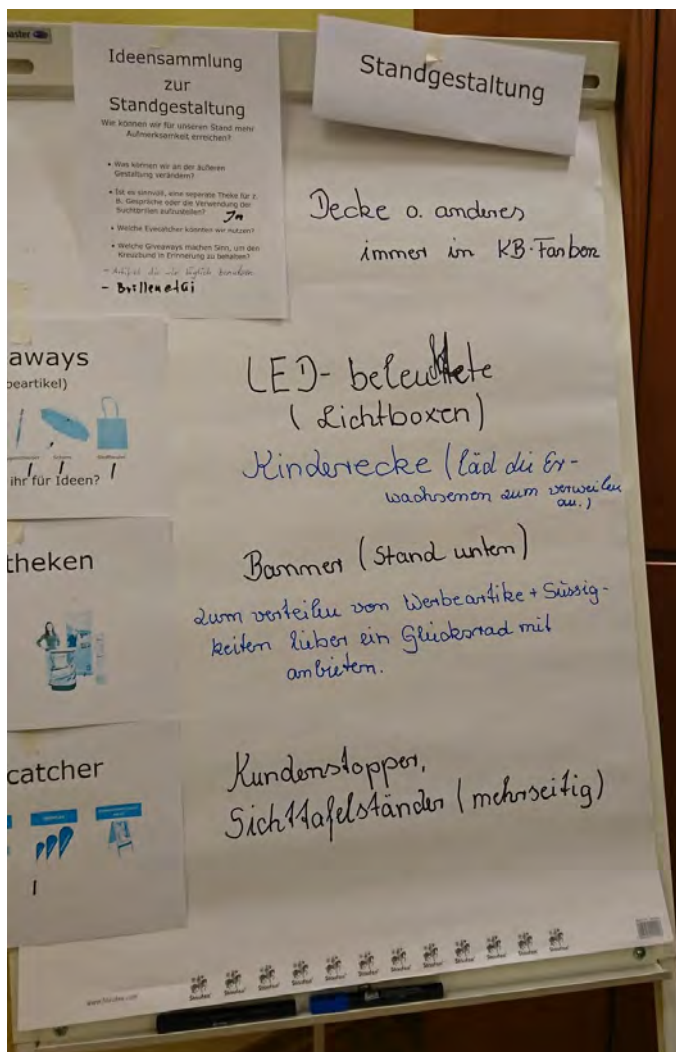 master
Ideensammlung
zur
Standgestaltung
Wie können wir für unseren Stand mehr
Aufmerksamkeit erreichen?
• Was können wir an der äußeren
Gestaltung verändern?
• Ist es sinnvoll, eine seperate Theke für z.
B. Gespräche oder die Verwendung der
Suchtbrillen aufzustellen? Ja
• Welche Eyecatcher könnten wir nutzen?
• Welche Giveaways machen Sinn, um den
Kreuzbund in Erinnerung zu behalten?
- die wir täglich
- Brillenetui
Standgestaltung
Decke o. anderes
immer in KB-Fanbon
aways
beartikel)
ihr für Ideen?
LED-beleuchtete
(Lichtboxen)
Kinderecke (läd die Er-
wachsenen zum verweilen
an.)
theken
Banner (Stand unten)
zum verteilen von Werbeartike + Süssig-
keiten lieber ein Glücksrad mit
anbieten.
catcher
Kundenstopper,
Sichttafelständer (mehrseitig)